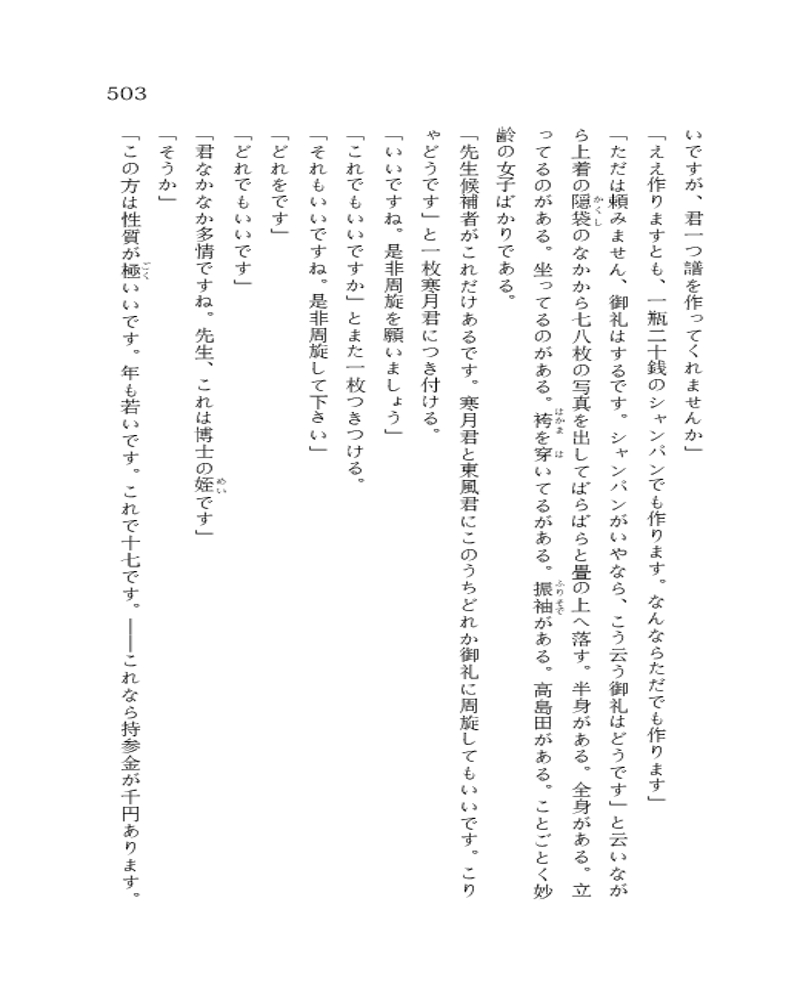 503
いですが、君一つ譜を作ってくれませんか」
「ええ作りますとも、一瓶二十銭のシャンパンでも作ります。なんならただでも作ります」
「ただは頼みません、御礼はするです。シャンパンがいやなら、こう云う御礼はどうです」と云いなが
ら上着の隠袋のなかから七八枚の写真を出してばらばらと畳の上へ落す。半身がある。全身がある。立
かくし
ってるのがある。坐ってるのがある。袴を穿いてるがある。振袖がある。高島田がある。ことごとく妙
はかま は ふりそで
齢の女子ばかりである。
「先生候補者がこれだけあるです。寒月君と東風君にこのうちどれか御礼に周旋してもいいです。こり
ゃどうです」と一枚寒月君につき付ける。
「いいですね。是非周旋を願いましょう」
「これでもいいですか」とまた一枚つきつける。
「それもいいですね。是非周旋して下さい」
「どれをです」
「どれでもいいです」
「君なかなか多情ですね。先生、これは博士の姪です」
めい
「そうか」
「この方は性質が極いいです。年も若いです。これで十七です。――これなら持参金が千円あります。
ごく